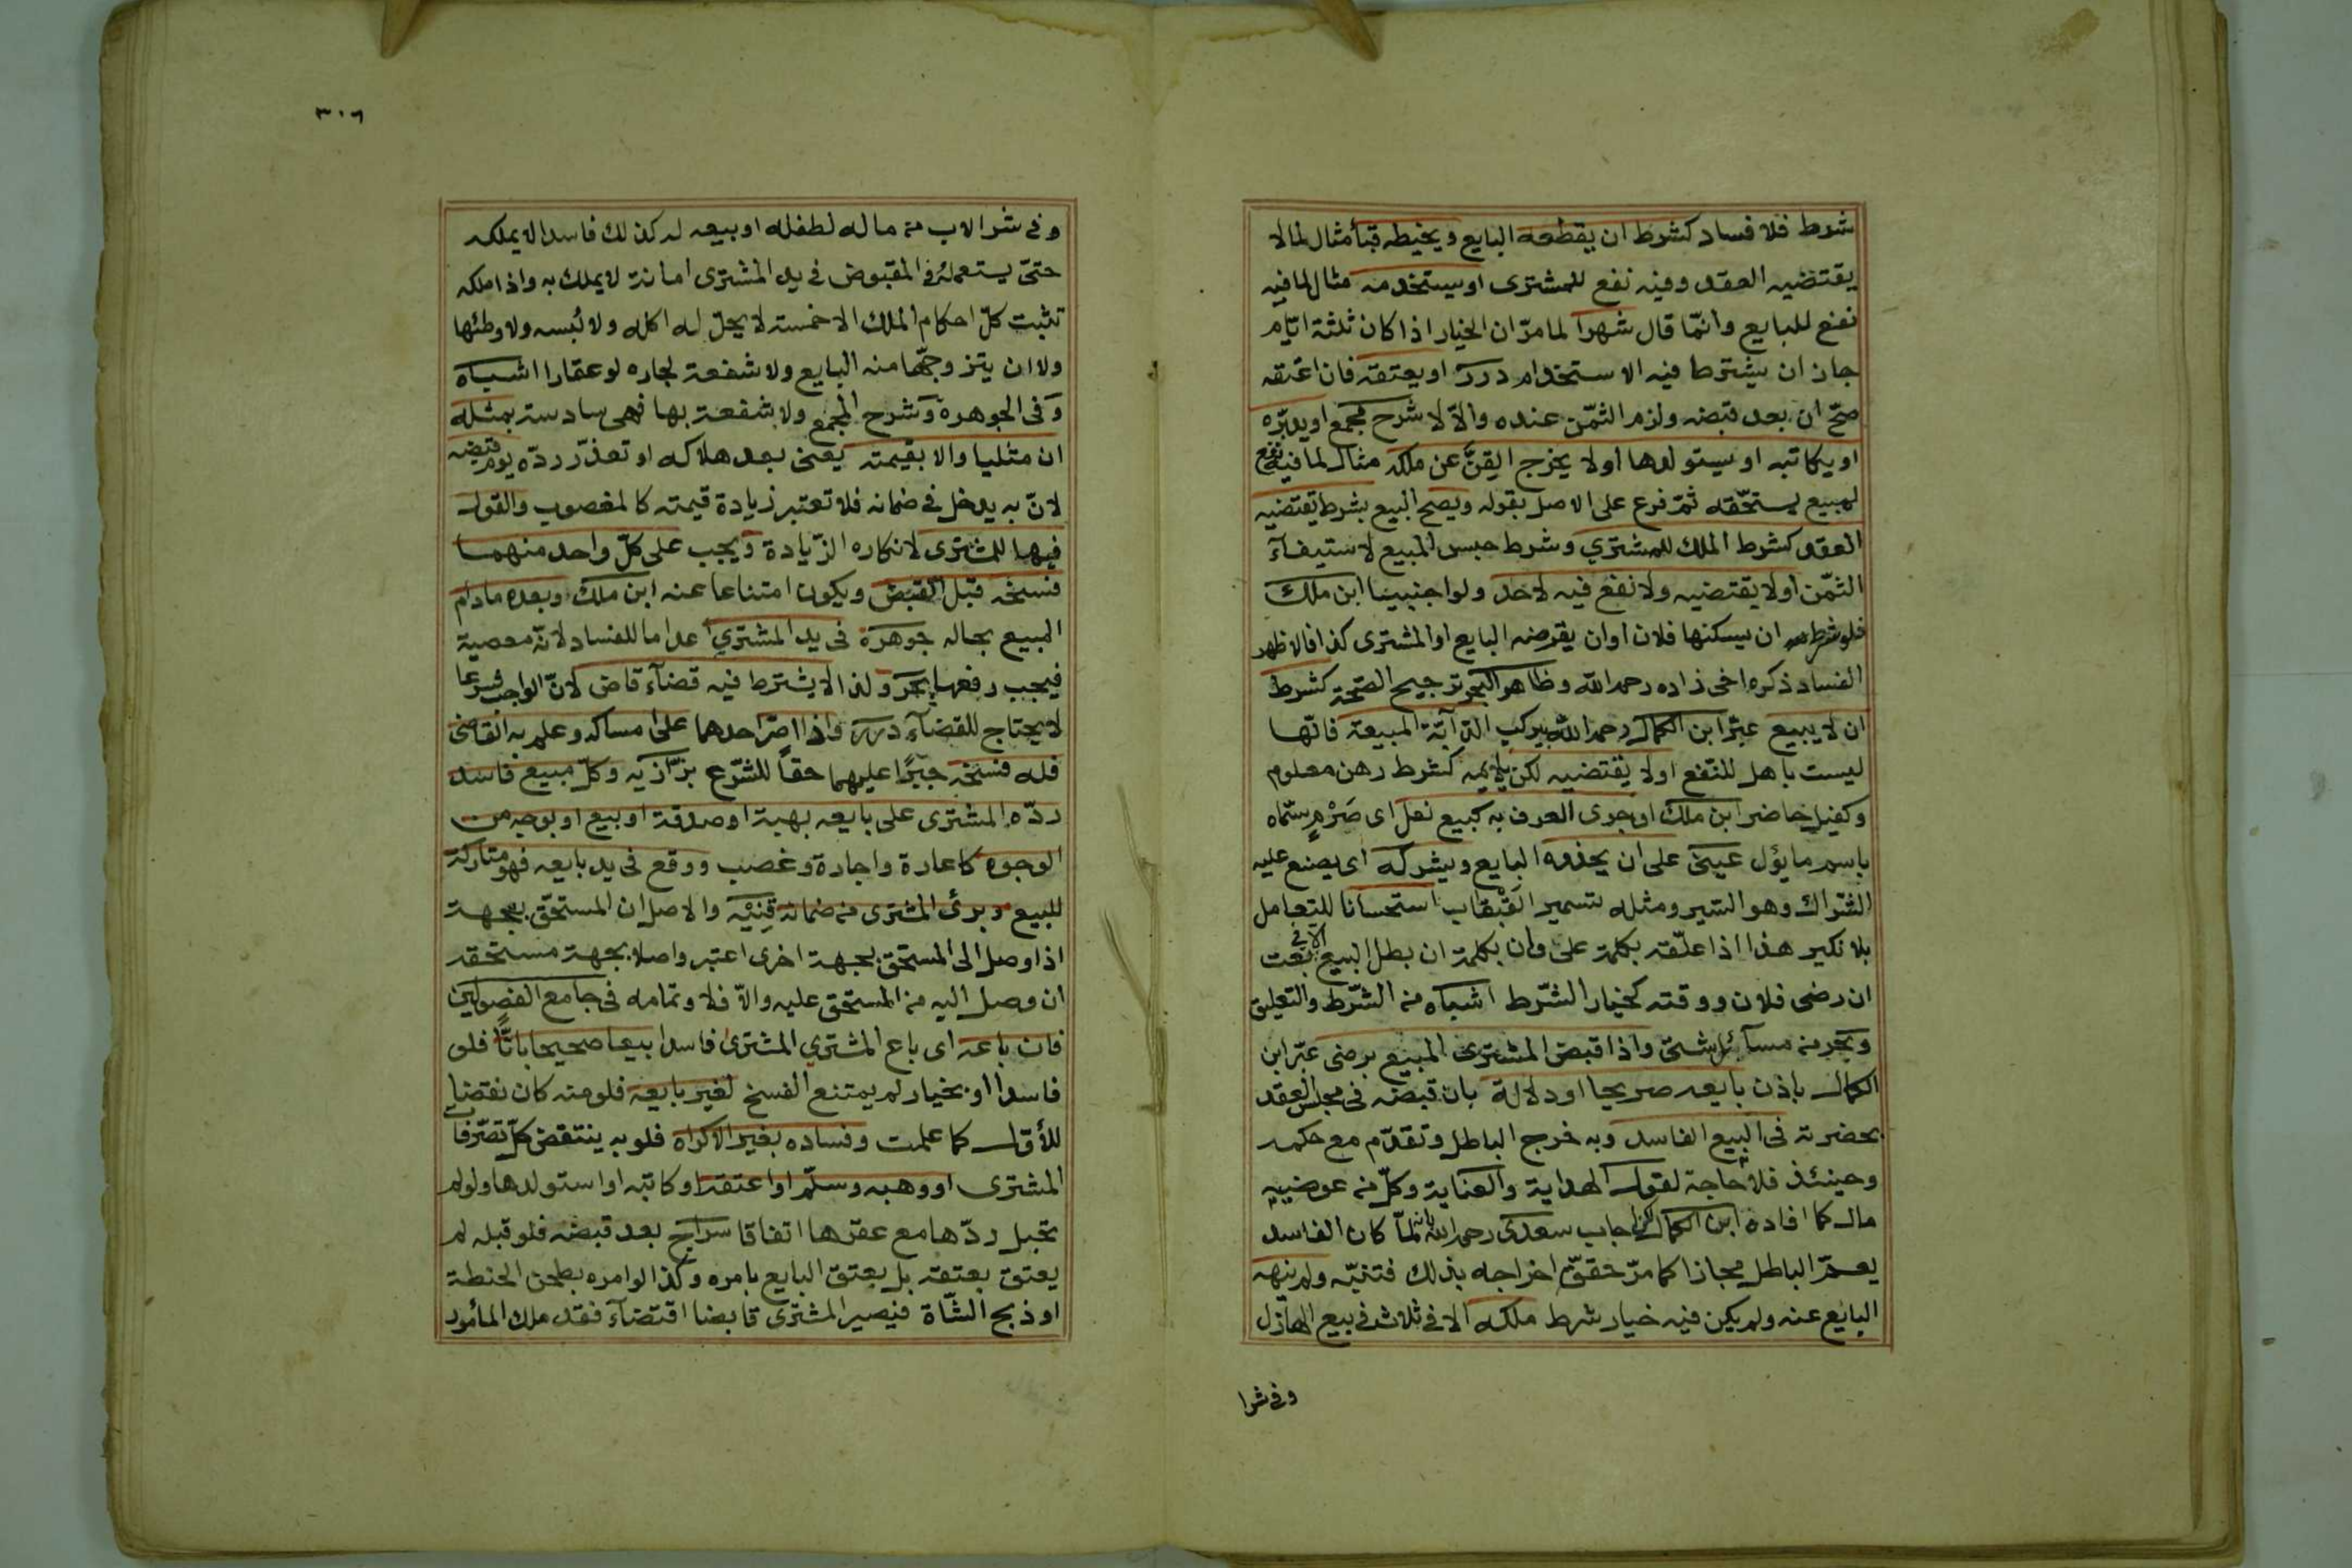 شرط فلا فساد كشرط ان يقطعه البايع ويخيطه قبأ مثال لما لا
يقتضيه العقد وفيه نفع للمشترى او يستخدمه مثال لما فيه
نفع للبايع وانّما قال شهرا لما مرّ ان الخيار اذا كان ثلثة ايّام
جاز ان يشترط فيه الاستخدام درر او يعتقه فان اعتقه
صحّ ان بعد قبضه ولزم الثمّن عنده والّا لا شرح مجمع او يدبّره
او يكاتبه او يستولدها او لا يخرج القِنَّ عن ملكه مثال لما فيه نفع
لمبيع يستحّقه ثمّ فرع على الاصل بقوله ويصح البيع بشرط يقتضيه
العقد كشرط الملك للمشتري وشرط حبس المبيع لاستيفآء
الثمّن او لا يقتضيه ولا نفع فيه لاحد ولو اجنبييا ابن ملك
فلو شرط ان يسكنها فلان او ان يقرضه البايع او المشترى كذا فالاظهر
الفساد ذكره اخى زاده رحمه الله وظاهر البحر ترجيح الصّحة كشرط
ان لا يبيع عبّر ابن الكمال رحمه الله بيركب الدّآبّة المبيعة فانّها
ليست باهل للنّفع او لا يقتضيه لكن يلايمه كشرط رهن معلوم
وكفيل حاضر ابن ملك او جرى العرف به كبيع نعل اى صَرْمٍ سمّاه
باسم ما يؤل عينى على ان يحذوه البايع ويشركه اى يصنع عليه
الشّراك وهو السّير ومثله تسمير القَبْقاب استحسانا للتعامل
بلا نكير هذا اذا علّقه بكلمة على وان بكلمة ان بطل البيع الا فى بعت
ان رضى فلان ووقته كخيار الشّرط اشباه من الشّرط والتعليق
وبحر من مسآئل شتىّ واذا قبض المشترى المبيع برضى عبّر ابن
الكمال باذن بايعه صريحا او دلالة بان قبضه فى مجلس العقد
بحضرته فى البيع الفاسد وبه خرج الباطل وتقدّم مع حكمه
وحينئذ فلا حاجة لقول الهداية والعناية وكلّ من عوضييه
مال كما افاده ابن الكمال لكن اجاب سعدى رحمه الله بانه لمّا كان الفاسد
يعمّ الباطل مجازا كما مرّ حقّق اخراجه بذلك فتنبّه ولم ينهه
البايع عنه ولم يكن فيه خيار شرط ملكه الا فى ثلاث فى بيع الهازل
وفى شرا
٣٠٦
وفى شرا الاب من ماله لطفله او بيعه له كذلك فاسدا لا يملكه
حتىّ يستعمله والمقبوض فى يد المشترى امانة لا يملك به واذا ملكه
تثبت كلّ احكام الملك الا خمسة لا يحلّ له اكله ولا لُبسه ولا وطئها
ولا ان يتزوجهّا منه البايع ولا شفعة لجاره لو عقارا اشباه
وفى الجوهرة وشرح المجمع ولا شفعة بها فهى سادسة بمثله
ان مثليا والا بقيمته يعنى بعد هلاكه او تعذّر ردّه يوم قبضه
لانّ به يدخل فى ضمانه فلا تعتبر زيادة قيمته كالمغصوب والقول
فيها للمشترى لانكاره الزّيادة ويجب على كلّ واحد منهما
فسخه قبل القبض ويكون امتناعا عنه ابن ملك وبعده مادام
المبيع بحاله جوهرة فى يد المشتري اعداما للفساد لانّه معصية
فيجب رفعها بحر ولذا لا يشترط فيه قضآء قاض لانّ الواجب شرعا
لا يحتاج للقضآء درر واذا اصرّ احدهما على امساكه وعلم به القاضى
فله فسخه جبرًا عليهما حقاً للشّرع بزّازيه وكلّ مبيع فاسد
ردّه المشترى على بايعه بهبة او صدقة او بيع او بوجه من
الوجوه كاعارة واجارة وغصب ووقع فى يد بايعه فهو متاركة
للبيع وبرئ المشترى من ضمانه قِنِيْه والاصل ان المستحّق بجهة
اذا وصل الى المستحق بجهة اخرى اعتبر واصلا بجهة مستحقه
ان وصل اليه من المستحق عليه والّا فلا وتمامه فى جامع الفصولين
فان باعه اى باع المشتري المشترى فاسدا بيعا صحيحا باتًّا فلو
فاسدا او بخيار لم يمتنع الفسخ لغير بايعه فلو منه كان نقضا
للأوّل كما علمت وفساده بغير الاكراه فلو به ينتقض كلّ تصّرفا
المشترى او وهبه وسلّم او اعتقه او كاتبه او استولدها ولو لم
تحبل ردّها مع عقرها اتفاقا سراج بعد قبضه فلو قبله لم
يعتق بعتقه بل بعتق البايع بامره وكذا لو امره بطحن الحنطة
او ذبح الشّاة فيصير المشترى قابضا اقتضآء فقد ملك المأمور